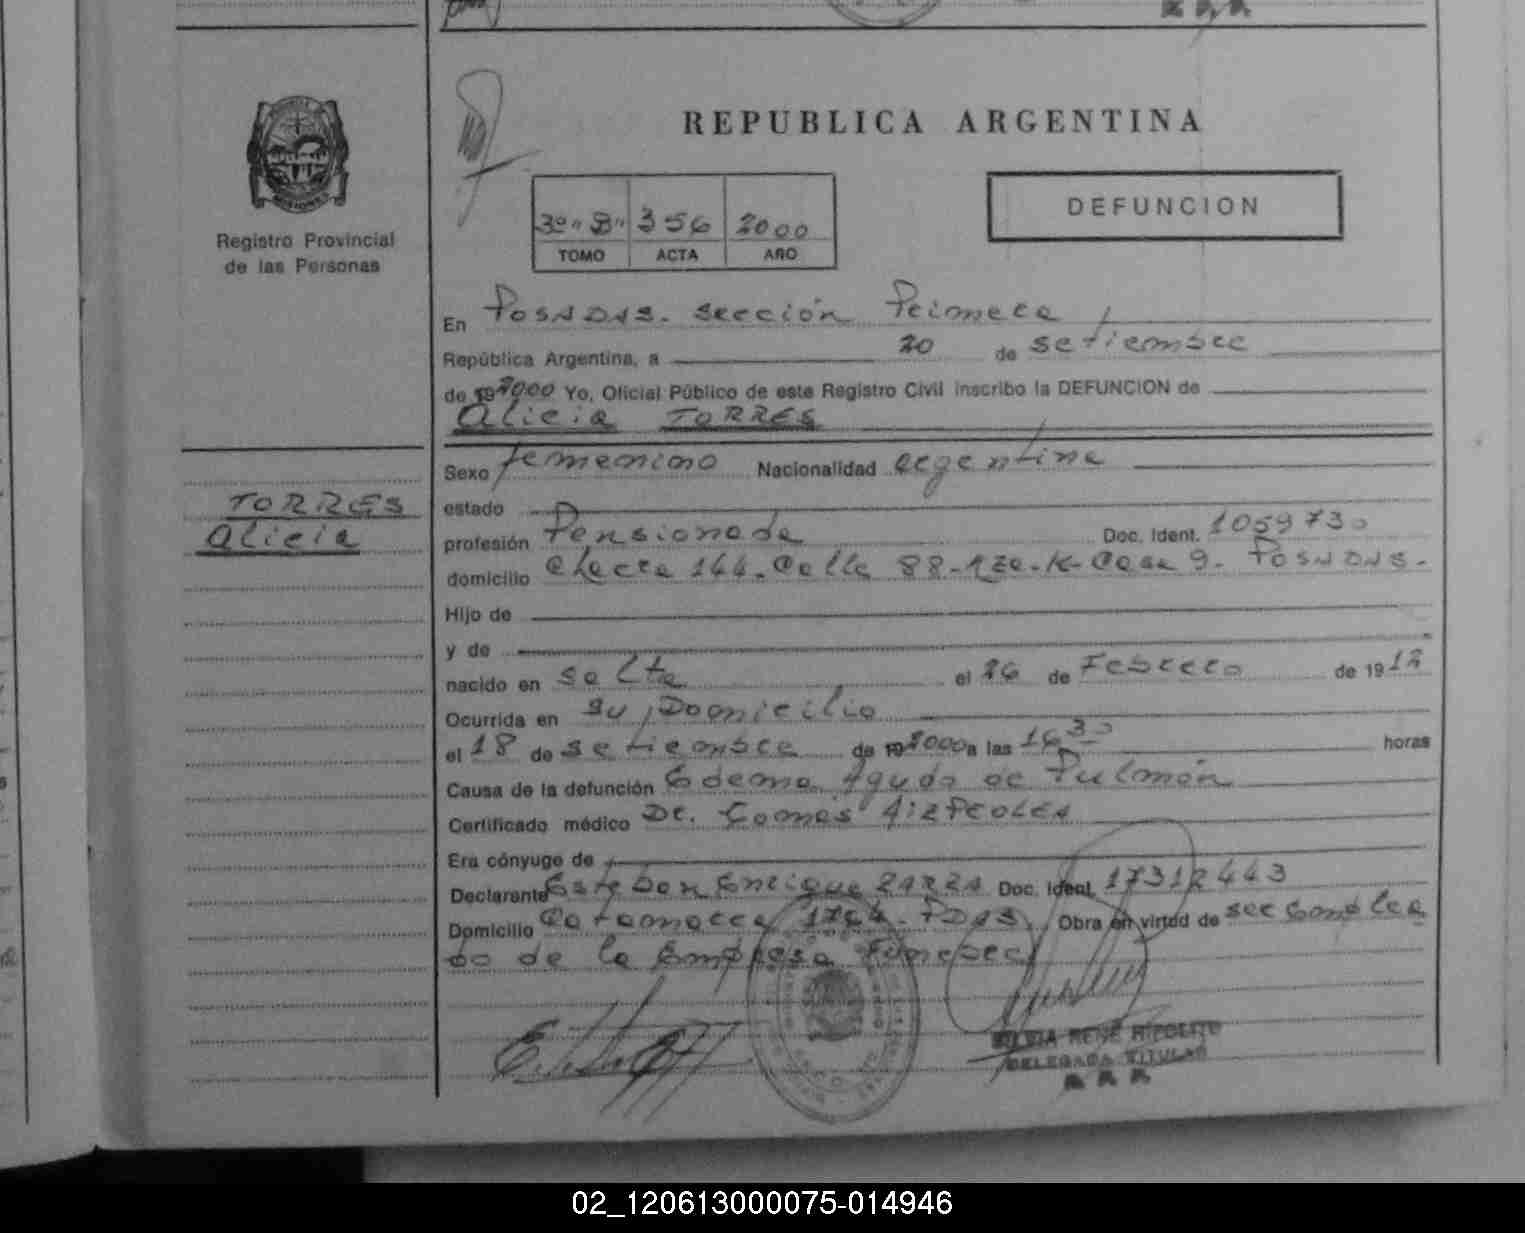 REPUBLICA ARGENTINA
Registro Provincial
de las Personas
3º "B" 356 2000
TOMO ACTA AÑO
DEFUNCION
En Posadas. sección Primera
República Argentina, a 20 de setiembre
de 19 2000 Yo, Oficial Público de este Registro Civil inscribo la DEFUNCION de
Alicia TORRES
TORRES
Alicia
Sexo femenino Nacionalidad argentina
estado
profesión Pensionada Doc. Ident. 1059730
domicilio Chacra 144. Calle 88-Mza-K-Casa 9. Posadas.
Hijo de
y de
nacido en Salta el 26 de Febrero de 1912
Ocurrida en su Domicilio
el 18 de setiembre de 19 2000 a las 16 30 horas
Causa de la defunción Edema Agudo de Pulmón
Certificado médico Dr. Gomes
Era cónyuge de
Declarante Esteban Enrique ZARZA Doc. Ident. 17312443
Domicilio Catamarca 1764-PDAS Obra en virtud de ser Emplea
do de la Empresa Funebre
RENE HIPOLITO
DELEGADA TITULAR
02_120613000075-014946